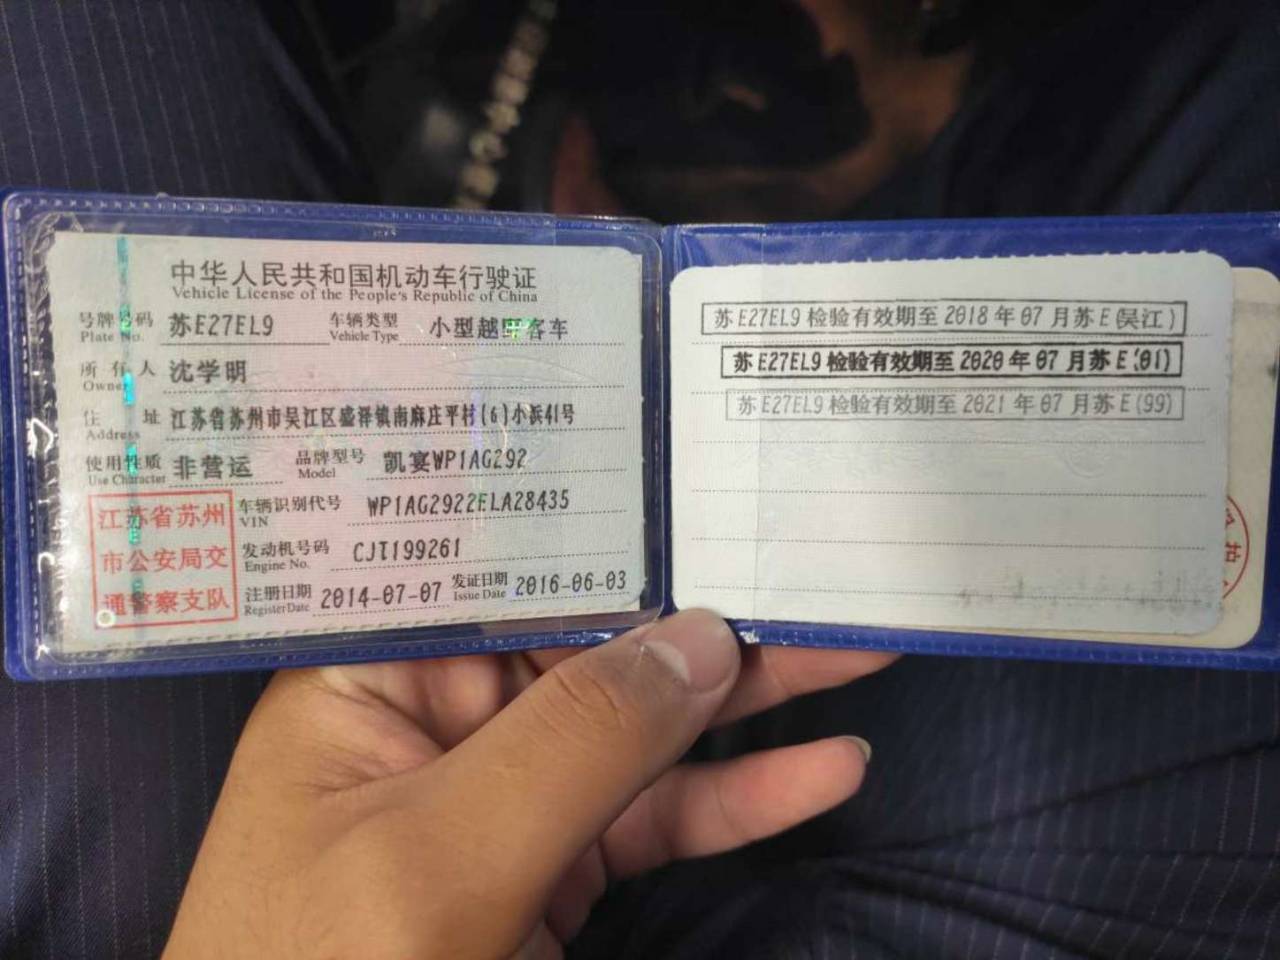 中华人民共和国机动车行驶证
Vehicle License of the People's Republic of China
号牌号码 苏E27EL9 车辆类型 小型越野客车
Plate No. Vehicle Type
所有人 沈学明
Owner
住址 江苏省苏州市吴江区盛泽镇南麻庄平村(6)小浜41号
Address
使用性质 非营运 品牌型号 凯宴WP1AG292
Use Character Model
江苏省苏州
市公安局交
通警察支队
车辆识别代号 WP1AG2922ELA28435
VIN
发动机号码 CJT199261
Engine No.
注册日期 2014-07-07 发证日期 2016-06-03
Register Date Issue Date
苏E27EL9检验有效期至2018年07月苏E(吴江)
苏E27EL9检验有效期至2020年07月苏E(01)
苏E27EL9检验有效期至2021年07月苏E(99)